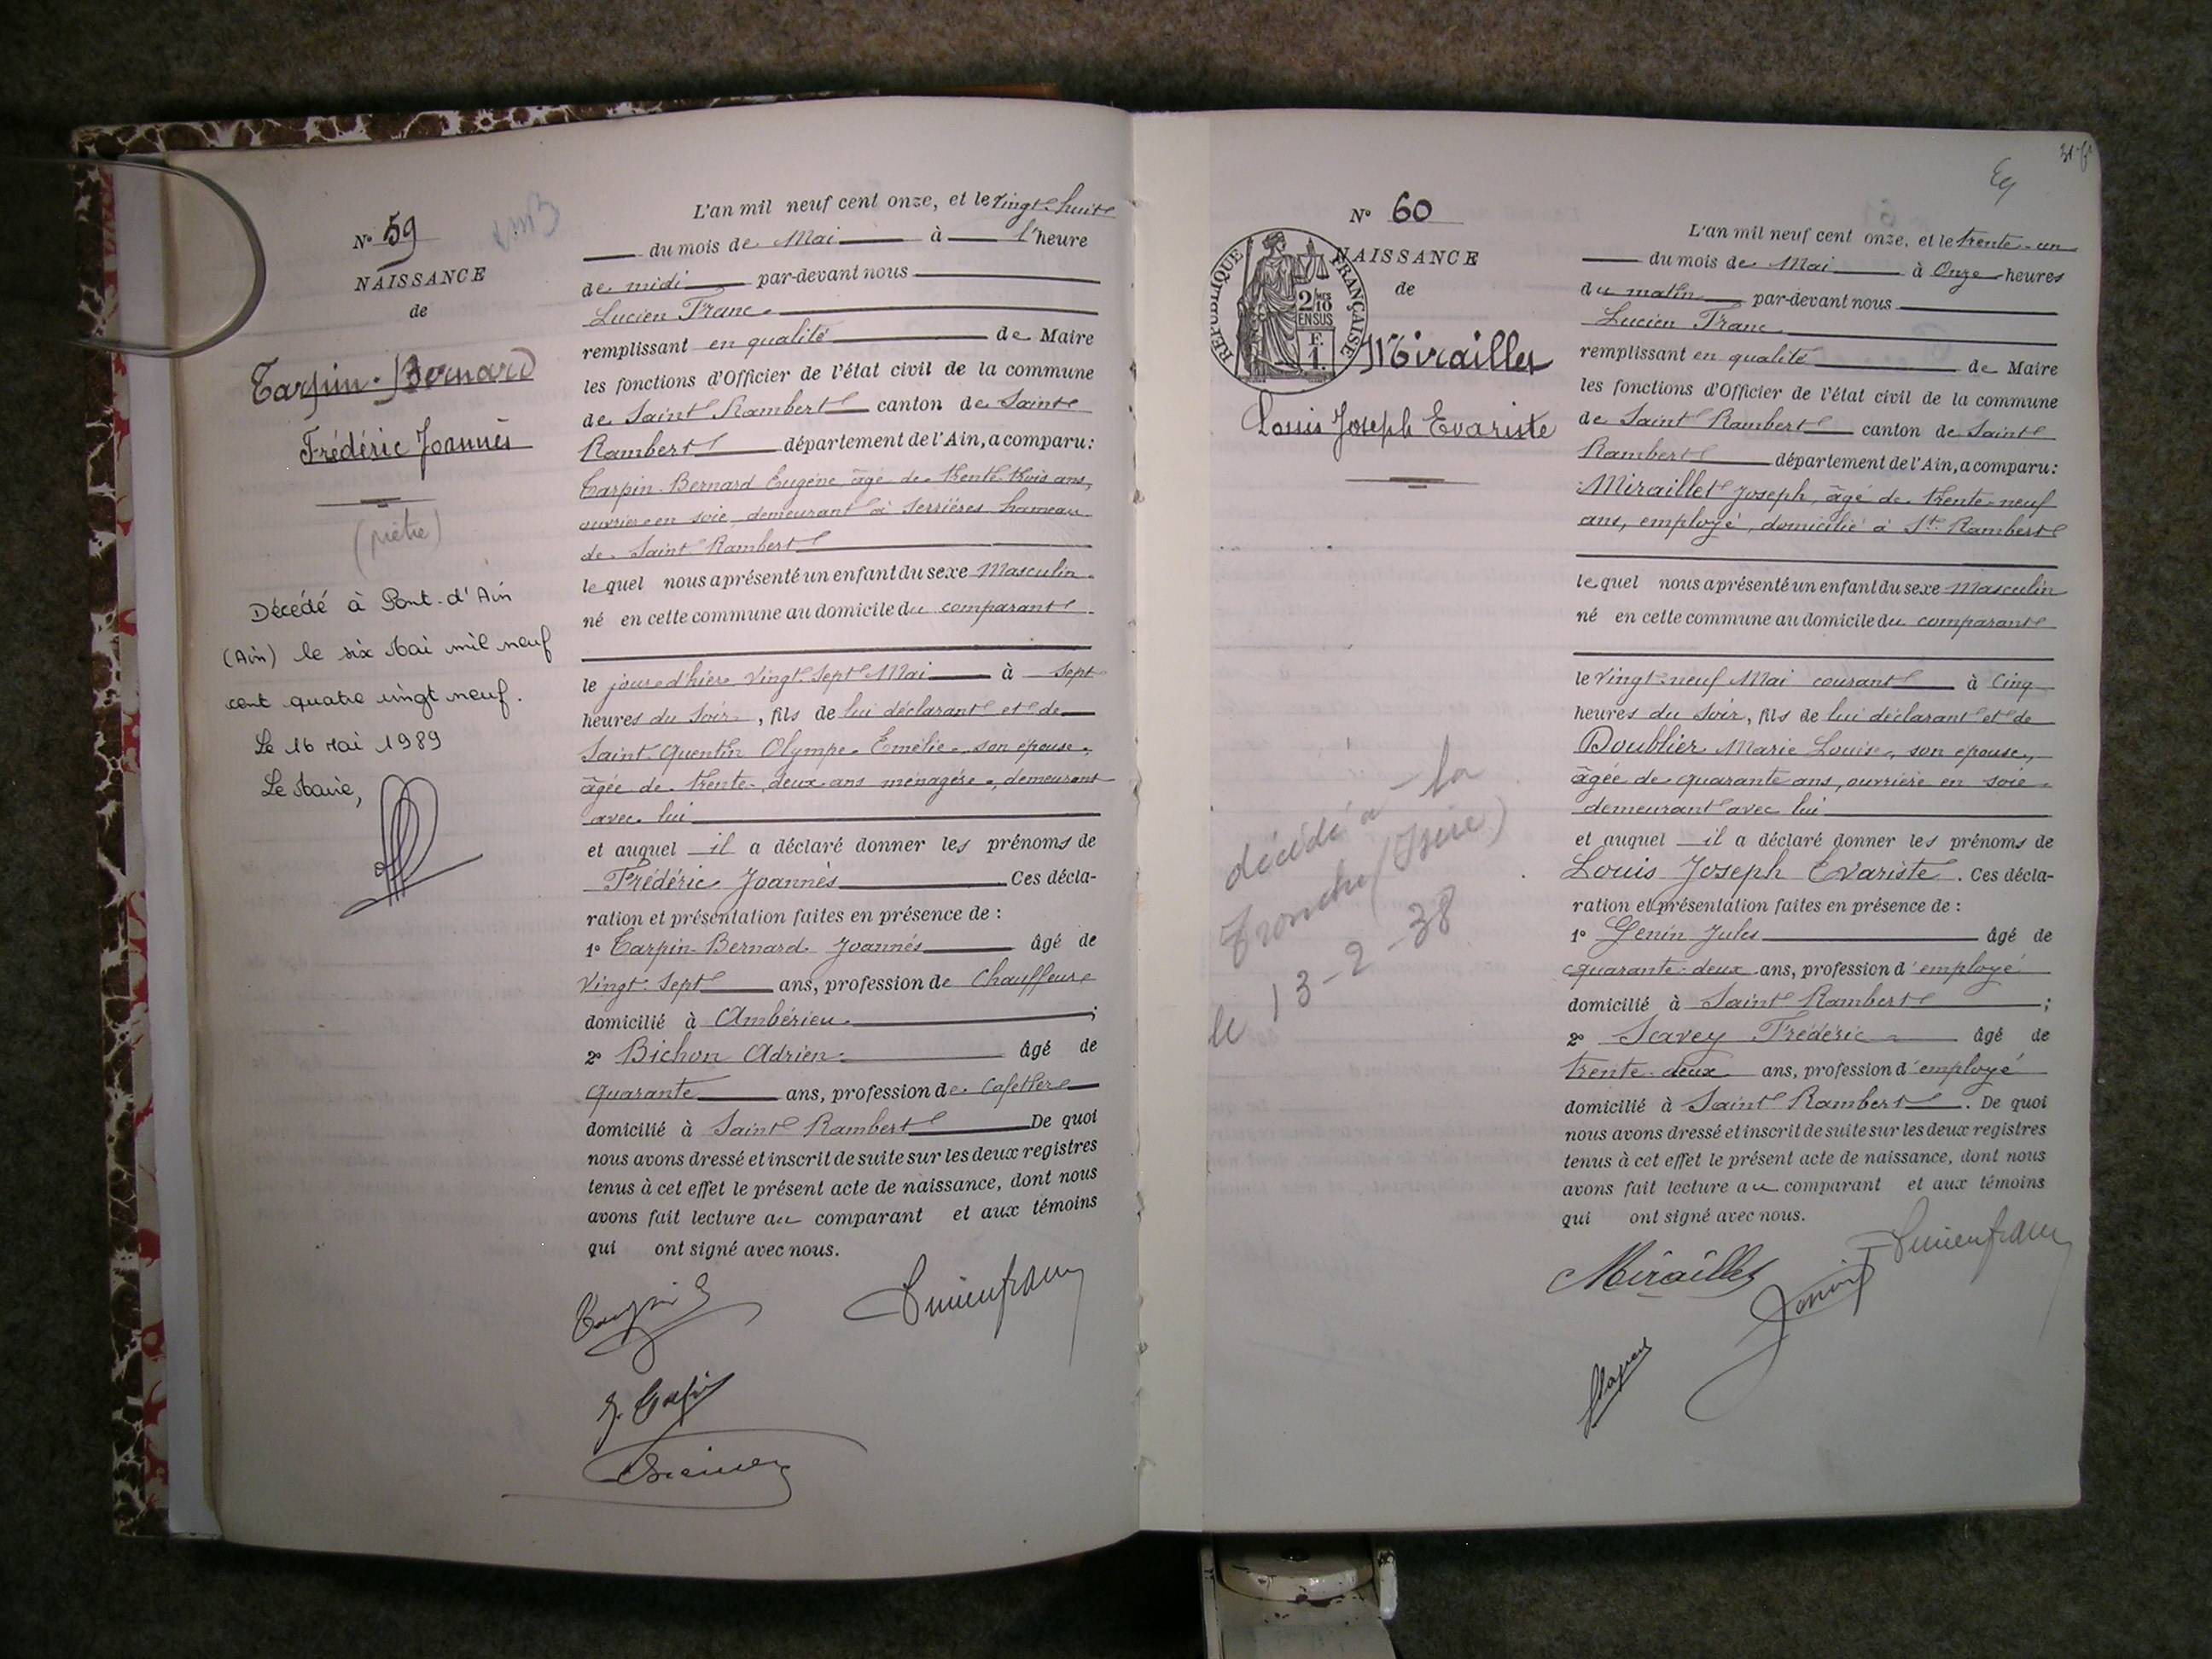 N° 59
NAISSANCE
de
Tarpin-Bernard
Frédéric Joannès
(prêtre)
Décédé à Pont-d'Ain
(Ain) le six Mai mil neuf
cent quatre vingt neuf.
Le 16 Mai 1989
Le Maire,
L'an mil neuf cent onze, et le vingt-huit
du mois de Mai à l'heure
de midi par-devant nous
Lucien Franc
remplissant en qualité de Maire
les fonctions d'Officier de l'état civil de la commune
de Saint Rambert canton de Saint
Rambert département de l'Ain, a comparu:
Tarpin-Bernard Eugène, âgé de trente-trois ans,
ouvrier en soie, demeurant à Serrières hameau
de Saint Rambert
lequel nous a présenté un enfant du sexe Masculin
né en cette commune au domicile du comparant
le jour d'hier vingt-sept Mai à sept
heures du soir, fils de lui déclarant et de
Saint-Quentin Olympe Emélie, son épouse,
âgée de trente-deux ans ménagère, demeurant
avec lui
et auquel il a déclaré donner les prénoms de
Frédéric Joannès Ces décla-
ration et présentation faites en présence de :
1° Tarpin-Bernard Joannès âgé de
vingt-sept ans, profession de Chauffeur
domicilié à Ambérieu ;
2° Bichon Adrien âgé de
quarante ans, profession de Cafetier
domicilié à Saint Rambert De quoi
nous avons dressé et inscrit de suite sur les deux registres
tenus à cet effet le présent acte de naissance, dont nous
avons fait lecture au comparant et aux témoins
qui ont signé avec nous.
Lucien franc
N° 60
NAISSANCE
de
RÉPUBLIQUE FRANÇAISE
2/10
EN SUS
F.
1.
Miraillet
Louis Joseph Evariste
décédé à la
Tronche (Isère)
le 13-2-38
L'an mil neuf cent onze, et le trente-un
du mois de Mai à Onze heures
du matin par-devant nous
Lucien Franc
remplissant en qualité de Maire
les fonctions d'Officier de l'état civil de la commune
de Saint Rambert canton de Saint
Rambert département de l'Ain, a comparu:
Miraillet Joseph, âgé de trente-neuf
ans, employé, domicilié à St Rambert
lequel nous a présenté un enfant du sexe Masculin
né en cette commune au domicile du comparant
le vingt-neuf Mai courant à cinq
heures du soir, fils de lui déclarant et de
Doublier Marie Louise, son épouse,
âgée de quarante ans, ouvrière en soie
demeurant avec lui
et auquel il a déclaré donner les prénoms de
Louis Joseph Evariste. Ces décla-
ration et présentation faites en présence de :
1° Genin Jules âgé de
quarante-deux ans, profession d'employé
domicilié à Saint Rambert ;
2° Savey Frédéric âgé de
trente-deux ans, profession d'employé
domicilié à Saint Rambert. De quoi
nous avons dressé et inscrit de suite sur les deux registres
tenus à cet effet le présent acte de naissance, dont nous
avons fait lecture au comparant et aux témoins
qui ont signé avec nous.
Miraillet
Lucien franc